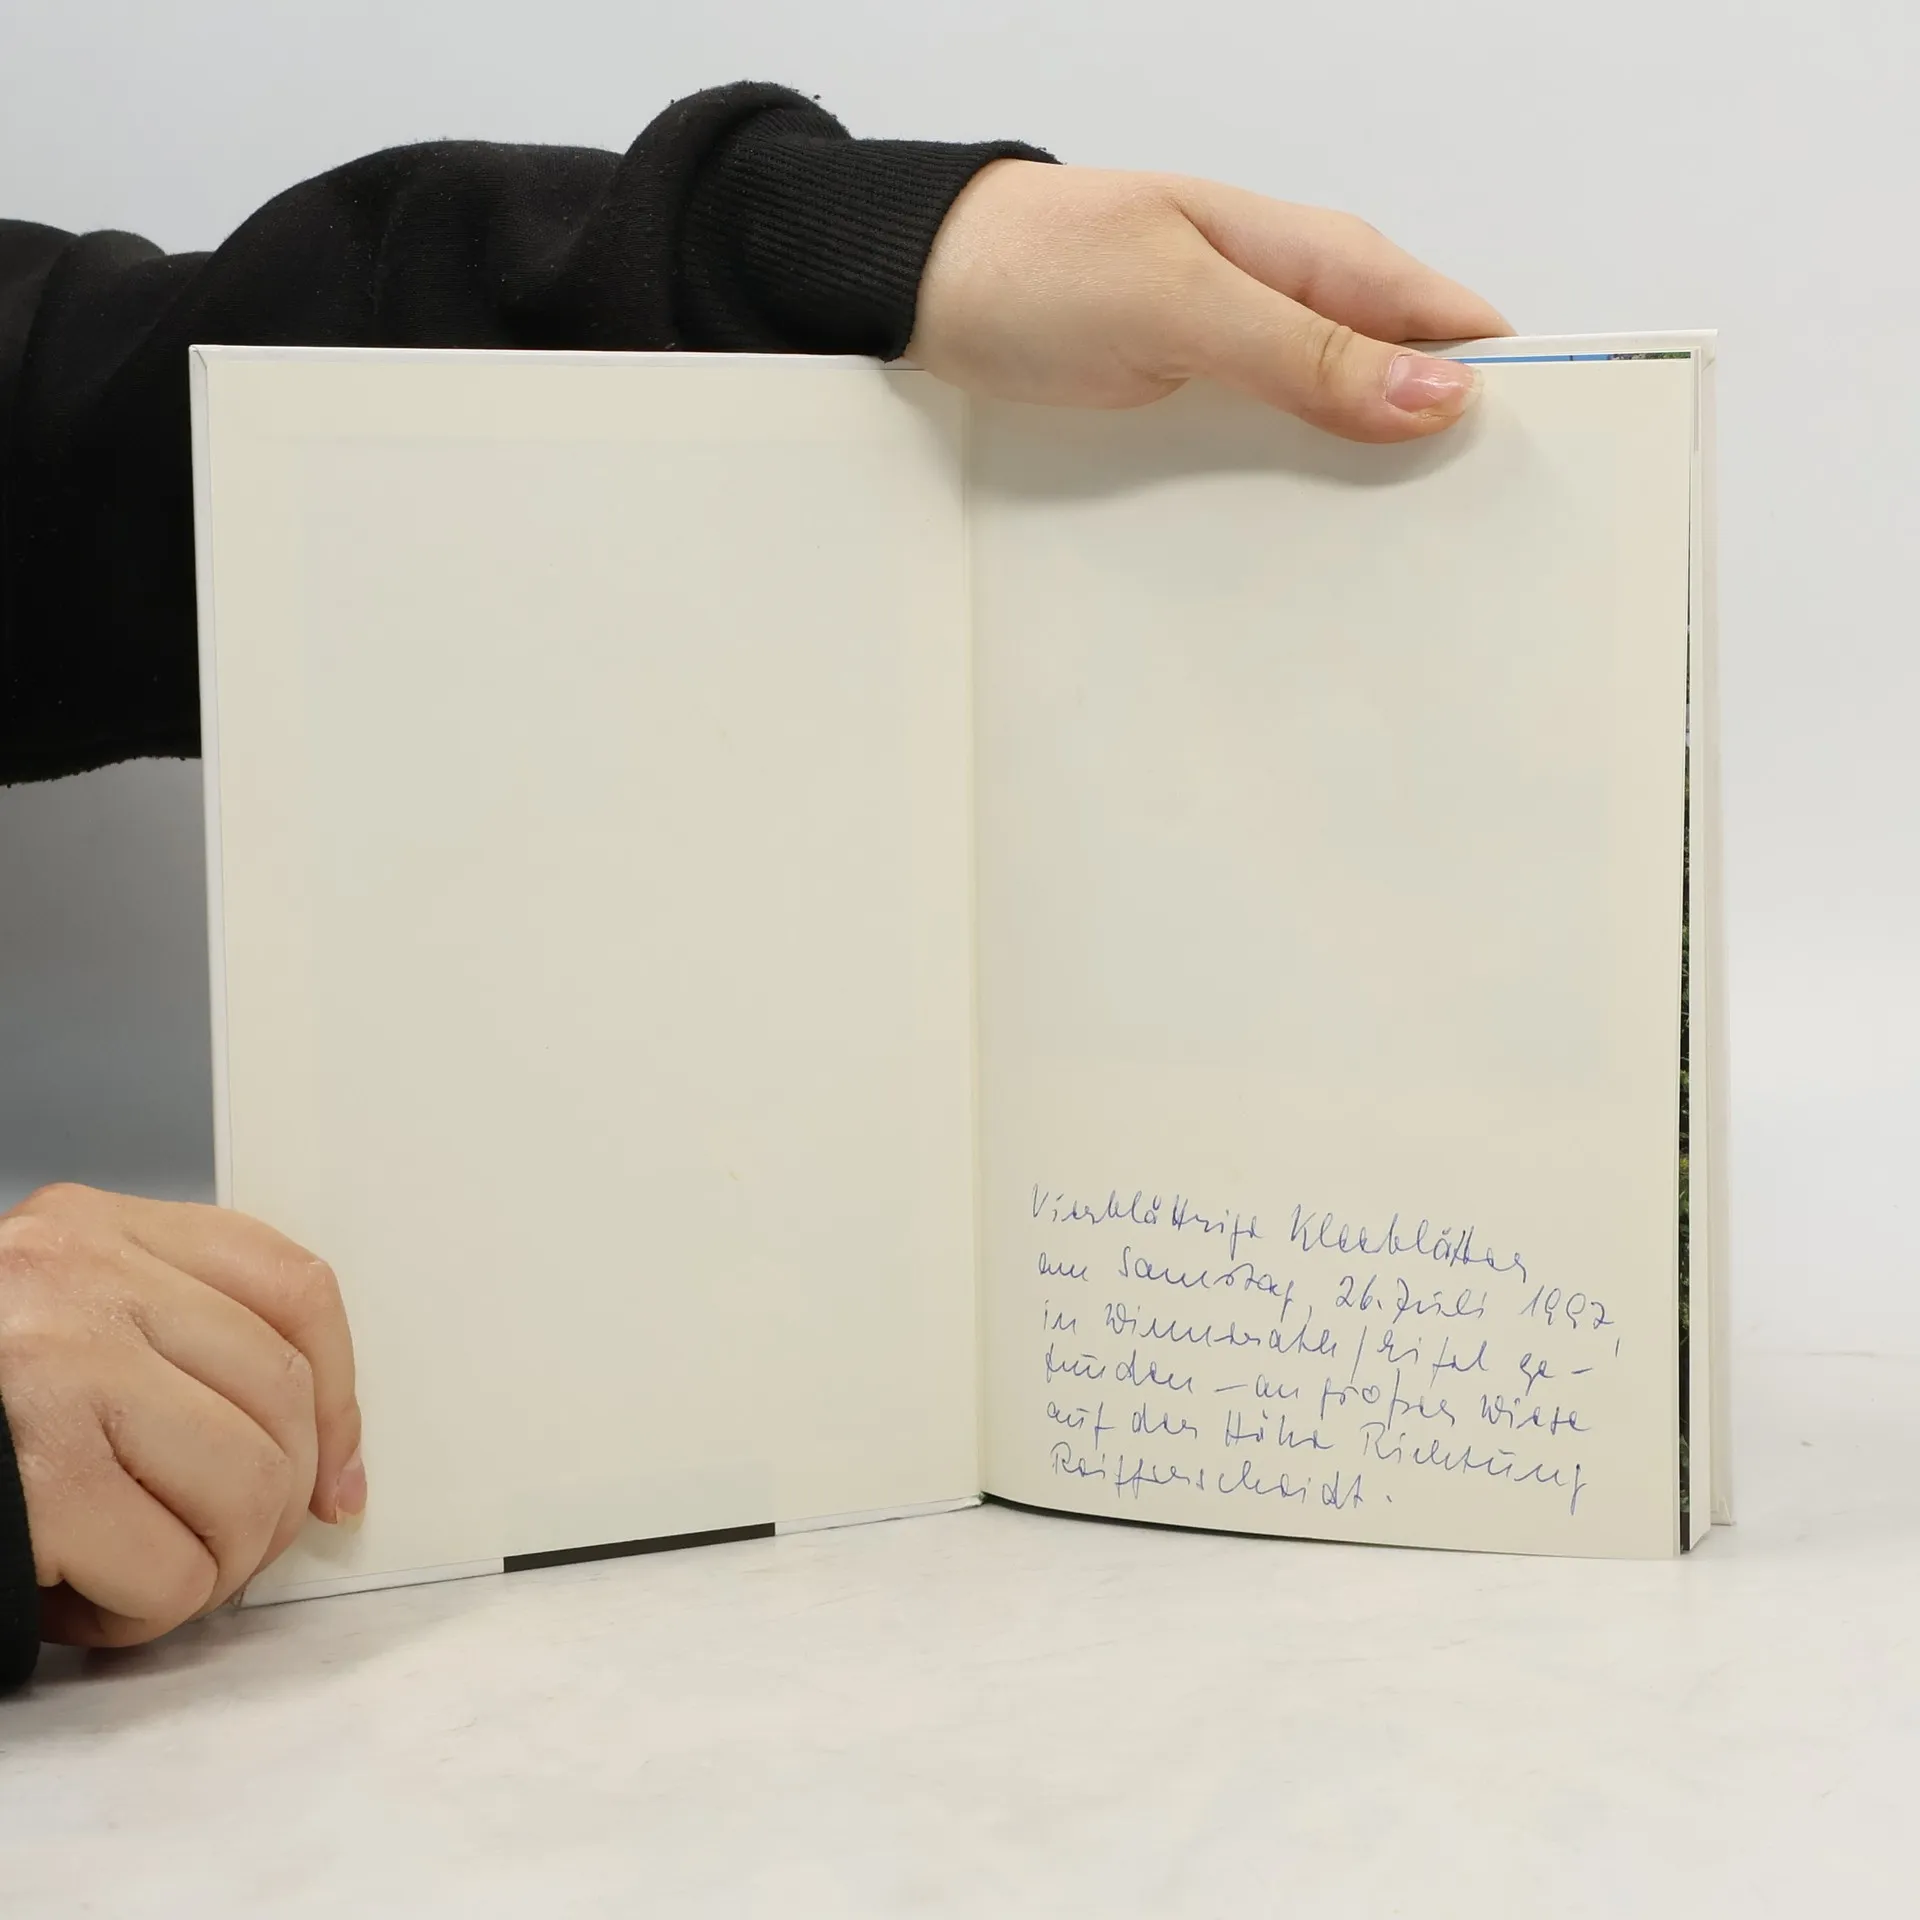 Vierblättrige Kleeblätter
am Samstag, 26. Juli 1997,
in Winnerath/Eifel ge-
funden – an großer Wiese
auf der Höhe Richtung
Reifferscheidt.